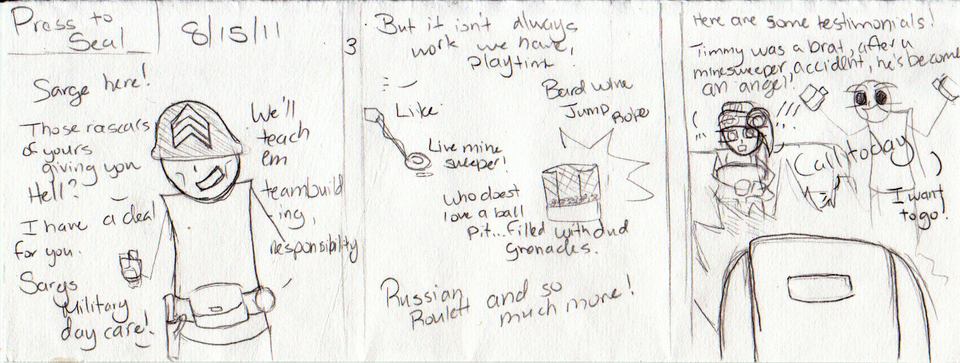 Press to
Seal
8/15/11
Sarge here!
Those rascars
of yours
giving you
Hell?
I have a deal
for you.
Sargs
Military
day care!
We'll
teach
em
teambuild
-ing,
responsibility
3
But it isn't always
work we have,
playtime!
Like
Live mine
sweeper!
Bard wire
Jump Rope
Who doest
love a ball
Pit...filled with dud
Grenades.
Russian
Roulett and so
much more!
Here are some testimonials!
Timmy was a brat, after a
minesweeper accident, he's become
an angel!
Call today
I want
to go!